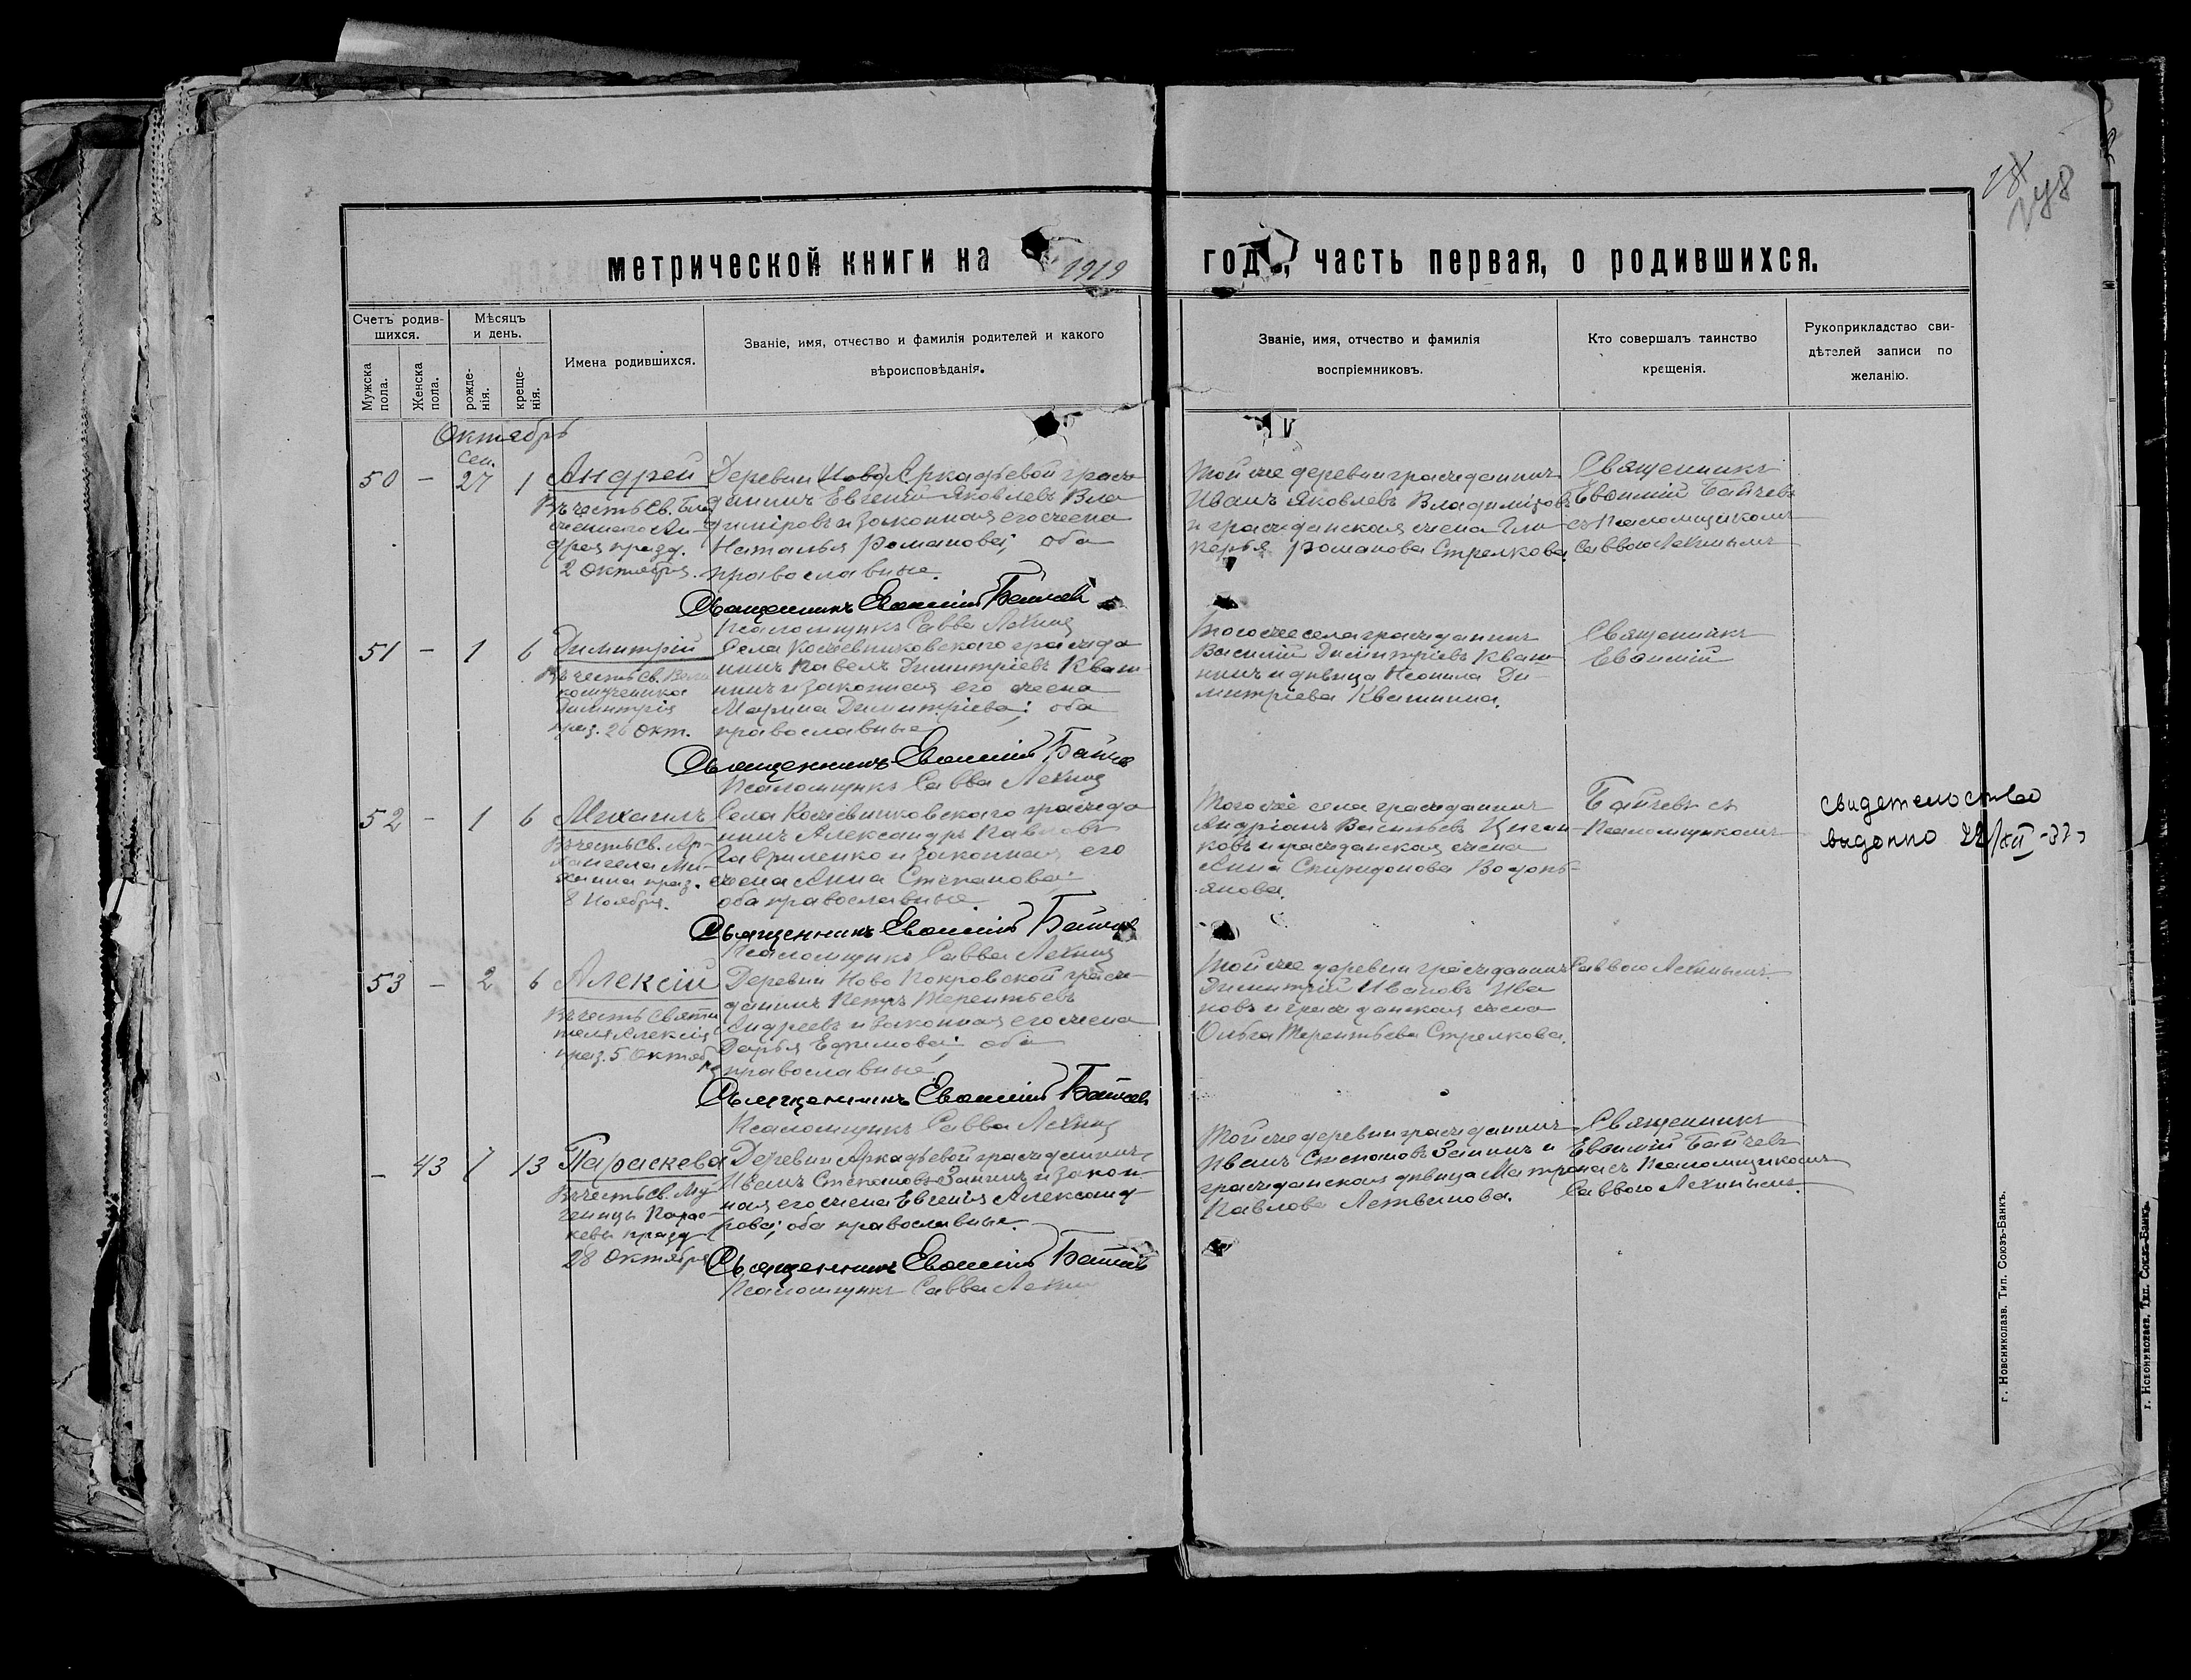 248
метрической книги на 1919 год, часть первая, о родившихся.
Счетъ родив-
шихся.
Мужска
пола.
Женска
пола.
Мѣсяцъ
и день.
рожде-
нія.
креще-
нія.
Имена родившихся.
Званіе, имя, отчество и фамилія родителей и какого
вѣроисповѣданія.
Званіе, имя, отчество и фамилія
воспріемниковъ.
Кто совершалъ таинство
крещенія.
Рукоприкладство сви-
дѣтелей записи по
желанію.
Октябрь
50 - Сен. 27 1
Андрей
Въ честь Св. Бла
женнаго Ан-
дрея празд.
2 Октября.
Деревни Ново Аркадьевой граж-
данинъ Евгеній Яковлевъ Вла
диміровъ и законная его жена
Наталья Романова; оба
православные.
Священникъ Евѳимій Байчевъ
Псаломщикъ Савва Лехинъ
Той же деревни гражданинъ
Иванъ Яковлевъ Владиміровъ
и гражданская жена Гли-
керья Романова Стрелкова.
Священникъ
Евѳимій Байчевъ
съ Псаломщикомъ
Саввою Лехинымъ
51 - 1 6
Димитрій
Въ честь Св. Вели
комученика
Димитрія
праз. 26 Окт.
Села Кожевниковскаго гражда
нинъ Павелъ Димитріевъ Кваш-
нинъ и законная его жена
Марина Димитріева; оба
православные
Священникъ Евѳимій Байчев
Псаломщикъ Савва Лехинъ
Того же села гражданинъ
Василій Димитріевъ Кваш-
нинъ и дѣвица Неонила Ди-
митріева Квашнина.
Священникъ
Евѳимій
52 - 1 6
Михаилъ
Въ честь Св. Ар-
хангела Ми-
хаила праз.
8 Ноября.
Села Кожевниковскаго гражда
нинъ Александръ Павловъ
Гавриленко и законная его
жена Анна Степанова;
оба православные
Священникъ Евѳимій Байчев
Псаломщикъ Савва Лехинъ
Того же села гражданинъ
Андріанъ Васильевъ Цыган-
ковъ и гражданская жена
Анна Спиридонова
Байчевъ съ
Псаломщикомъ
свидетельство
выданно 22/XII-37 г
53 - 2 6
Алексій
Въ честь Святи
теля Алексія
праз. 5 Октяб
ря
Деревни Ново Покровской граж-
данинъ Петръ Терентьевъ
Андреевъ и законная его жена
Дарья Ефимова; оба
православные
Священникъ Евѳимій Байчевъ
Псаломщикъ Савва Лехинъ
Той же деревни гражданинъ
Димитрій Ивановъ Ива
новъ и гражданская жена
Ольга Терентьева Стрелкова.
Саввою Лехинымъ
- 43 7 13
Параскева
Въ честь Св. Му-
ченицы Парас-
кевы празд
28 Октября
Деревни Аркадьевой гражданинъ
Иванъ Степановъ Занинъ и закон-
ная его жена Евгенія Александ-
рова; оба православные.
Священникъ Евѳимій Байчевъ
Псаломщикъ Савва Лехин
Той же деревни гражданинъ
Иванъ Степановъ Занинъ и
гражданская дѣвица Матрона
Павлова Летвинова.
Священникъ
Евѳимій Байчевъ
съ Псаломщикомъ
Саввою Лехинымъ.
г. Новониколаев. Тип. Союзъ-Банкъ.
г. Новониколаев. Тип. Союзъ-Банкъ.